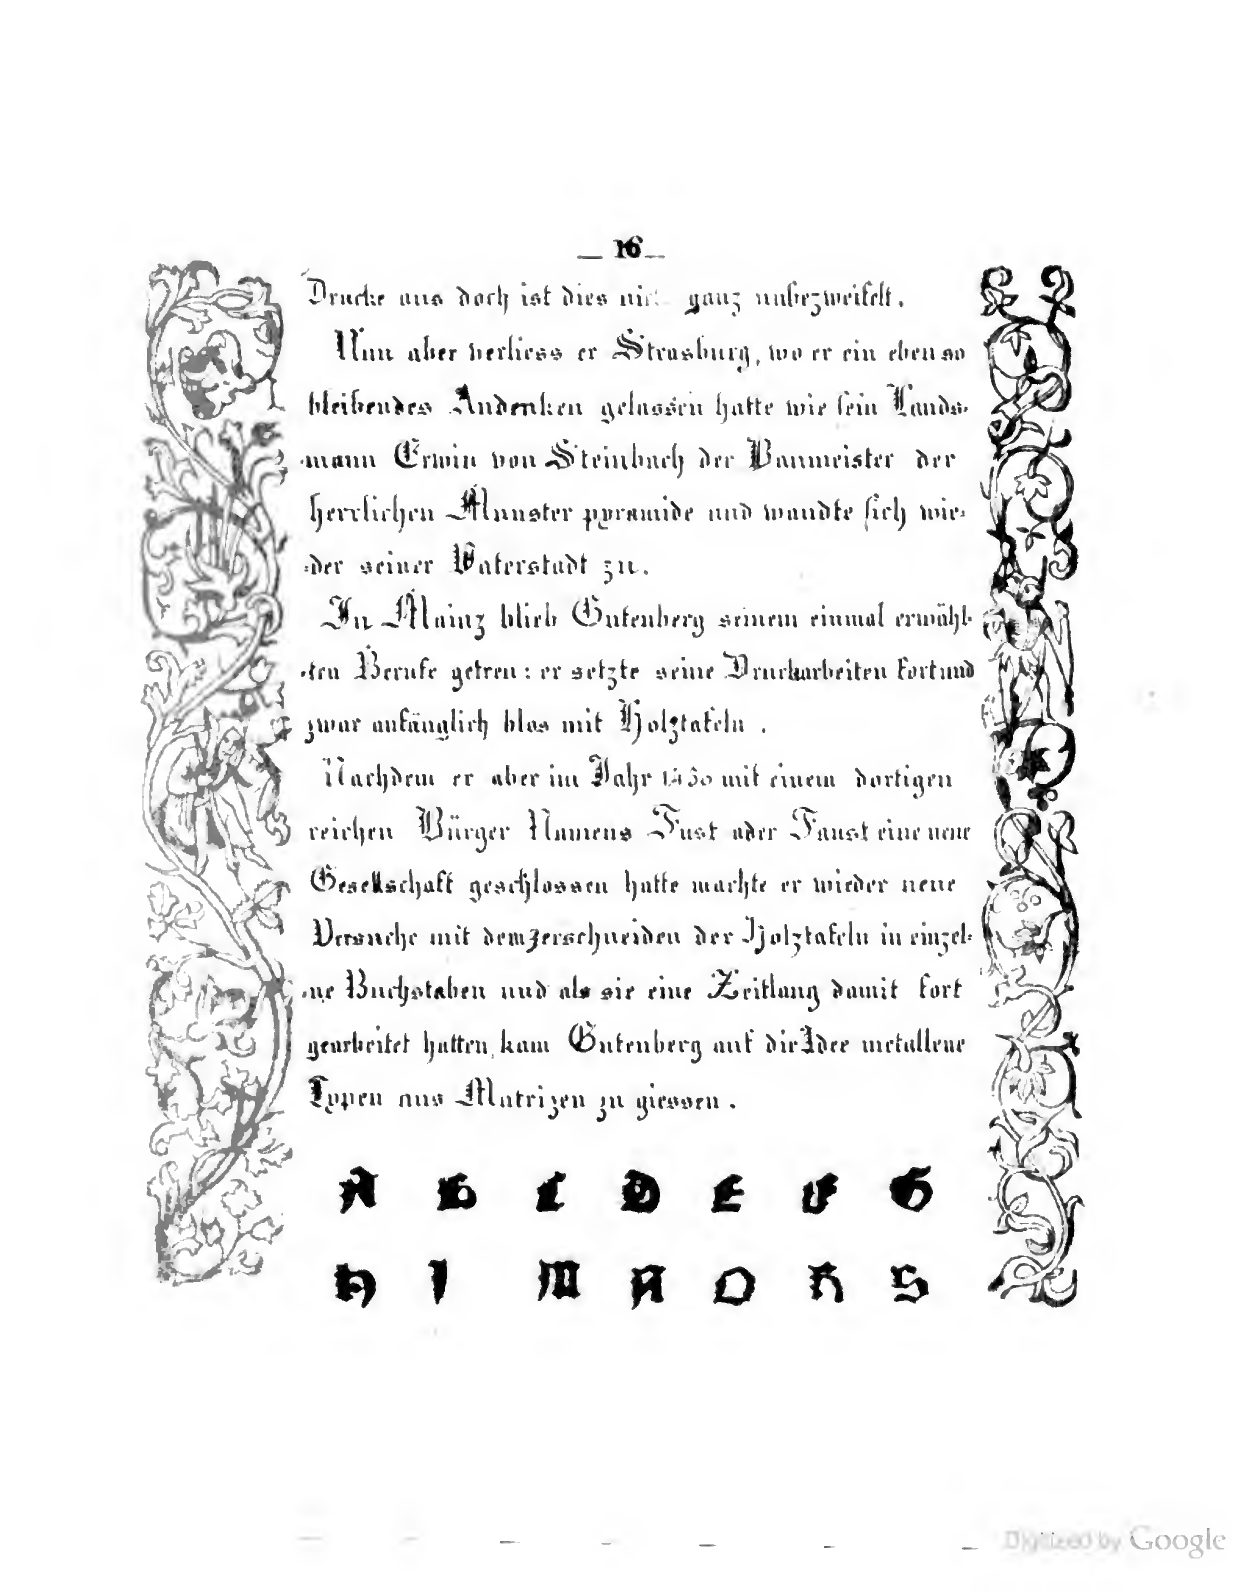 _ 16 _
Drucke aus doch ist dies ganz unbezweifelt.
Nun aber verliess er Strasburg, wo er ein eben so
bleibendes Andenken gelassen hatte wie sein Lands-
-mann Erwin von Steinbach der Baumeister der
herrlichen Munster pyramide und wandte sich wie-
-der seiner Vaterstadt zu.
In Mainz blieb Gutenberg seinem einmal erwähl-
-ten Berufe getreu: er setzte seine Druckarbeiten fort und
zwar anfänglich blos mit Holztafeln .
Nachdem er aber im Jahr 1450 mit einem dortigen
reichen Bürger Namens Fust oder Faust eine neue
Gesellschaft geschlossen hatte machte er wieder neue
Versuche mit dem zerschneiden der Holztafeln in einzel-
-ne Buchstaben und als sie eine Zeitlang damit fort
gearbeitet hatten, kam Gutenberg auf die Idee metallene
Typen aus Matrizen zu giessen .
A B C D E F G
H I M N O R S
Digitized by Google